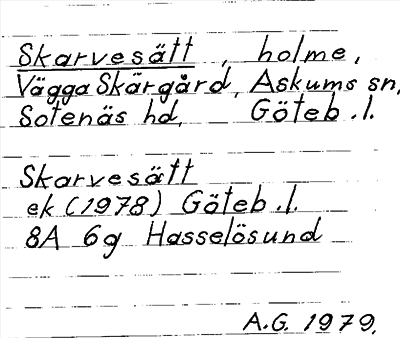 Skarvesätt, holme,
Vägga Skärgård, Askums sn,
Sotenäs hd, Göteb. l.
Skarvesätt
ek (1978) Göteb. l.
8A 6g Hasselösund
A.G. 1979.